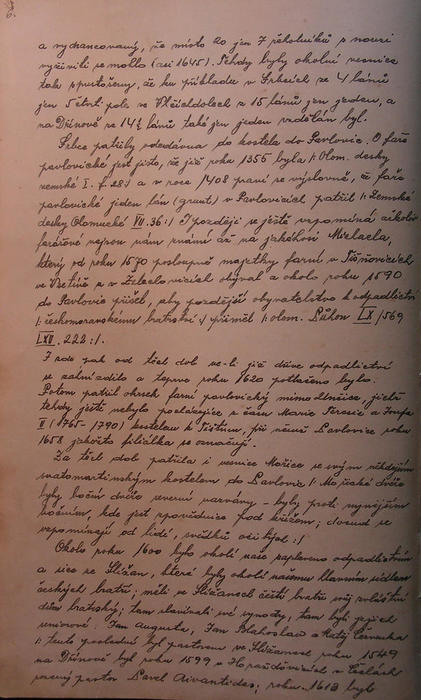 6.
a vydrancovaný, že místo 20 jen 7 řeholníků s nouzí
vyživiti se mohlo (asi 1645). Tehdy byly okolní vesnice
tak spustošeny, že ku příkladu v Srbcích ze 4 lánů
jen 5 čtvrt pole ve Vlčíchdolech z 15 lánů jen jeden, a
na Dřínově ze 14¾ lánů také jen jeden vzdělán byl.
Srbce patřily odedávna do kostela do Pavlovic. O faře
pavlovické jest jisto, že již roku 1355 byla /: Olom. desky
zemské I. f. 28:/ a v roce 1408 praví se výslovně, že faře
pavlovické jeden lán (grunt) v Pavlovicích patřil /: Zemské
desky Olomucké VII. 36:/ I později se ještě vzpomíná ačkoliv
farářové nejsou nám známí až na jakéhosi Michaela,
který od roku 1570 posloupně majetky farní v Těšnovicích
ve Vsetíně a v Zdislavicích obýval a okolo roku 1590
do Pavlovic přišel, aby pozdější obyvatelstvo k odpadlictví
/: českomoravskému bratrství :/ přiměl /: olom. Půhon IX /569
LXII. 222:/.
I zde pak od těch dob ne-li již dříve odpadlictví
se zahnízdilo a teprve roku 1620 potlačeno bylo.
Potom patřil okrsek farní pavlovický mimo dřínčice, jichž
tehdy ještě nebylo pocházejíce z času Marie Terezie a Josefa
II (1765–1790) kostelem k Tištínu, při němž Pavlovice roku
1658 jakožto filiálka se označují.
Za těch dob patřila i vesnice Mořice se svým někdejším
svatomartinským kostelem do Pavlovic /: Mořické dvéře
byly boční dvéře severní uzavřány – byly proti nynějším
bočním, kde jest zpovědnice pod křížem; dosud se
vzpomínají od lidí, svědků očitých :/
Okolo roku 1600 bylo okolí naše zaplaveno odpadlictvím
a sice ze Slížan, které byly okolí našemu hlavním sídlem
českých bratří; měli ve Slížanech čeští bratři svůj zvláštní
dům bratrský; tam slavívali své synody, tam byli jejich
seniorové: Jan Augusta, Jan Blahoslav a Matěj Červenka
/: tento poslední byl pastorem ve Slížanech roku 1549
na Dřínově byl roku 1599 z Horažďovic v Čechách
rozený pastor Pavel Aivantides; roku 1618 bylo